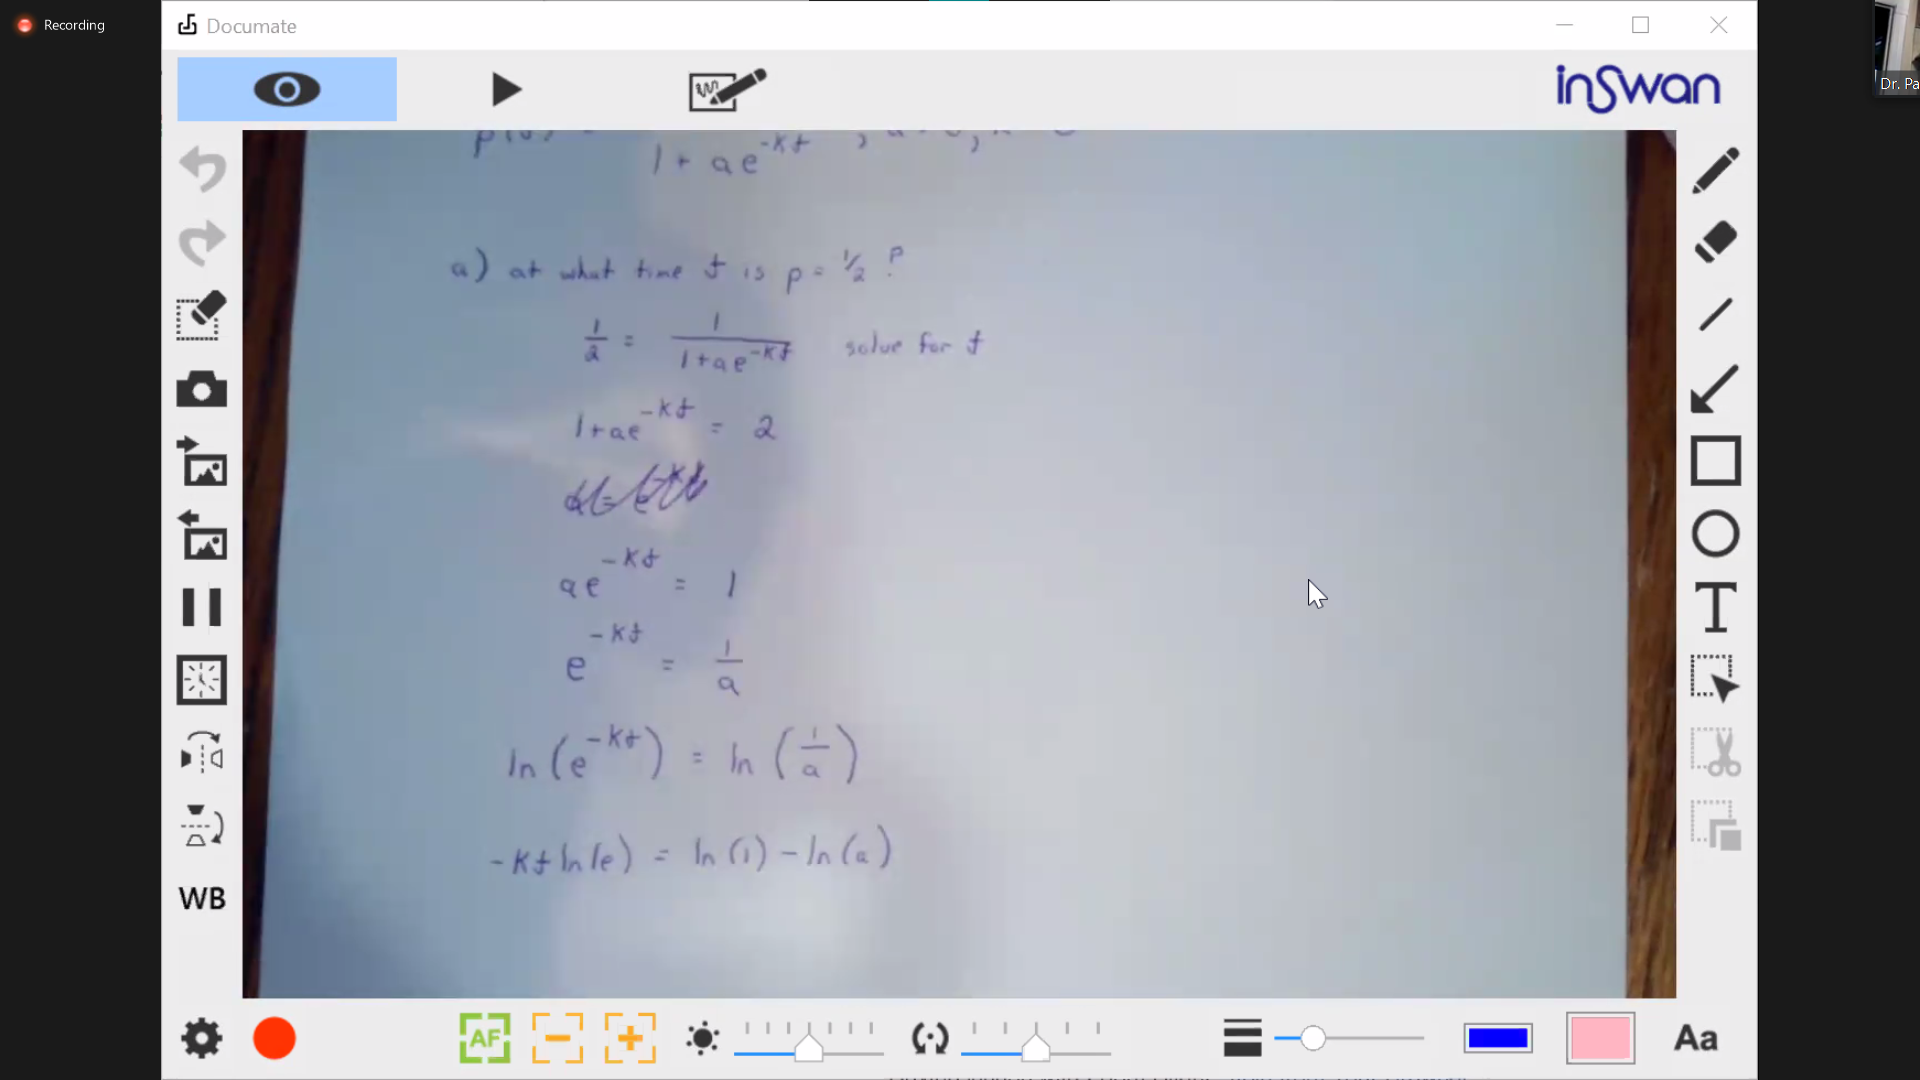 Recording
Documate
inSwan
Dr. Pa
1 + ae^-kt
a) at what time t is p = 1/2 ?
1/2 = 1/(1+ae^-kt) solve for t
1+ae^-kt = 2
ae^-kt = 1
e^-kt = 1/a
ln(e^-kt) = ln(1/a)
-kt ln(e) = ln(1) - ln(a)
WB
AF
T
Aa